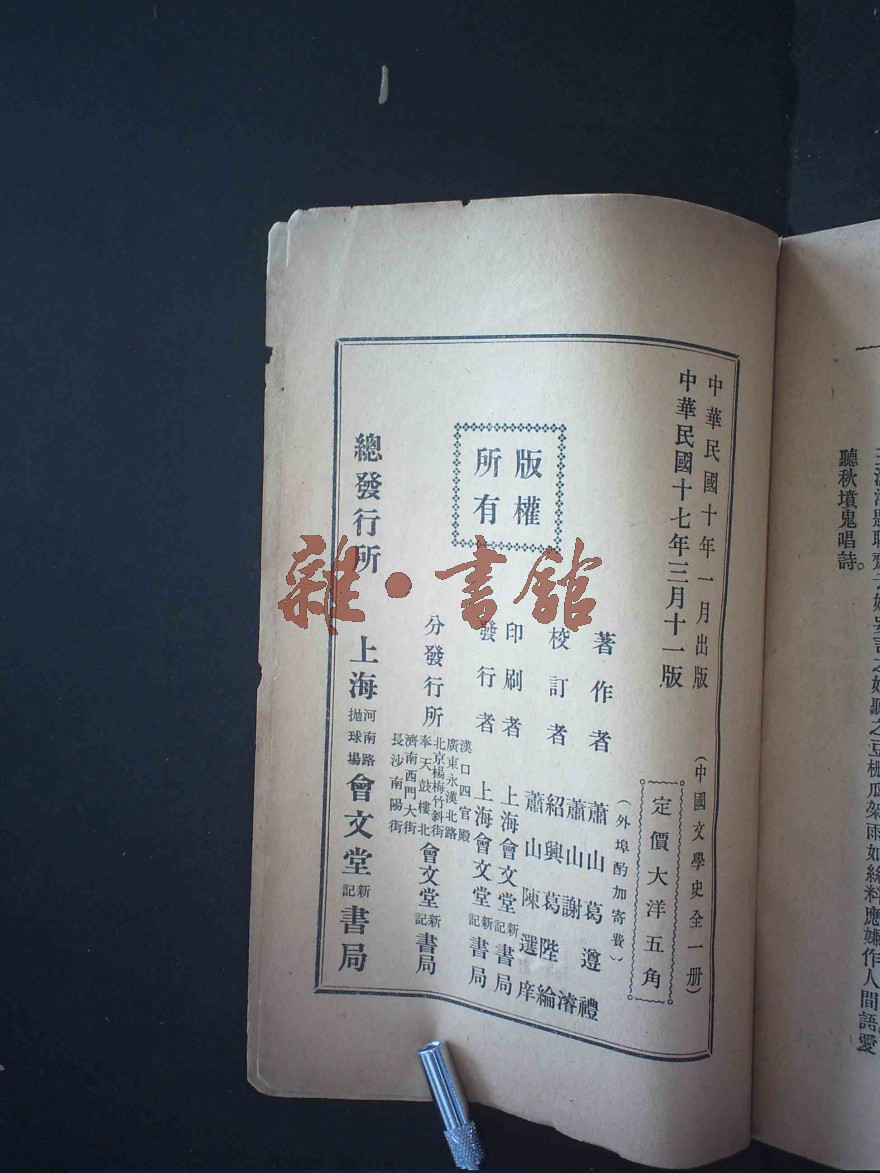 之豆棚瓜架雨如絲料應嫌作人間語愛
聽秋墳鬼唱詩。
中華民國十年一月出版
中華民國十七年三月十一版
(中國文學史全一册)
定價大洋五角
(外埠酌加寄費)
著作者 蕭山葛遵禮
校訂者 蕭山謝濬
紹興葛陛綸
蕭山陳選庠
印刷者 上海會文堂新記書局
發行者 上海會文堂新記書局
版權
所有
分發行所
漢口四官殿
廣東永漢北路
北京楊梅竹斜街
奉天鼓樓北
濟南西門大街
長沙南陽街
會文堂新記書局
總發行所 上海河南路拋球場會文堂新記書局
雜·書館